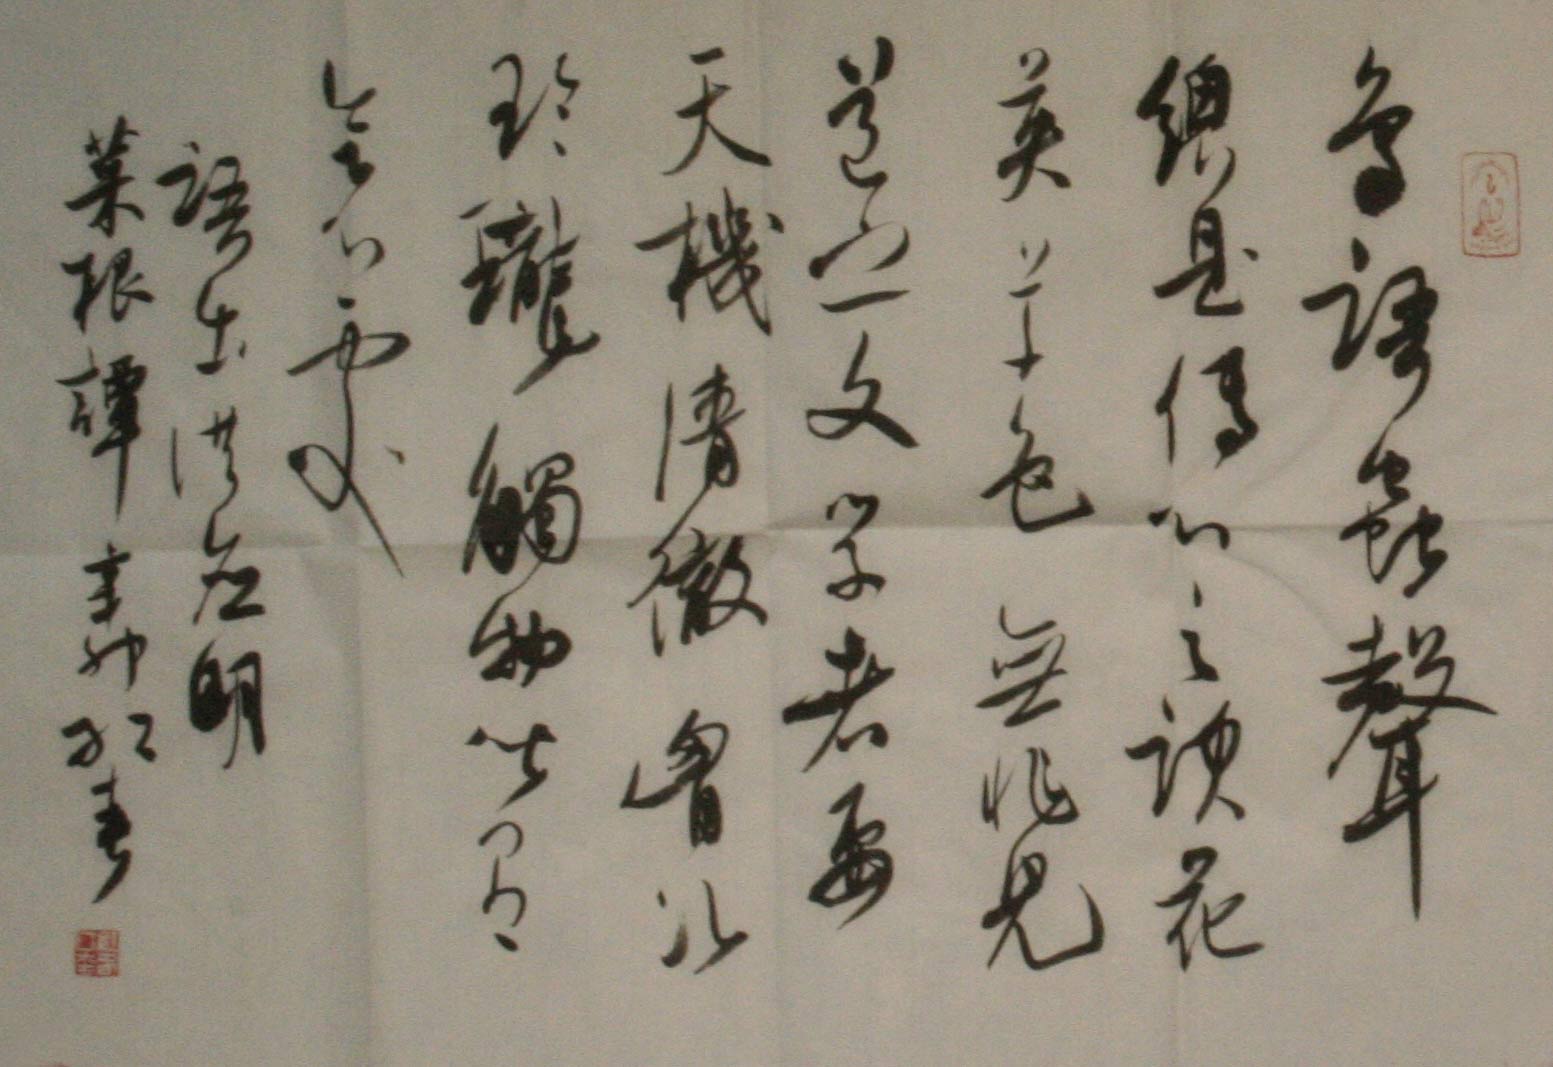 鳥語蟲聲
總是傳心之訣花
英草色無非見
道之文學者要
天機清徹胷次
玲瓏觸物皆有
會心處
語出洪應明
菜根譚辛卯春